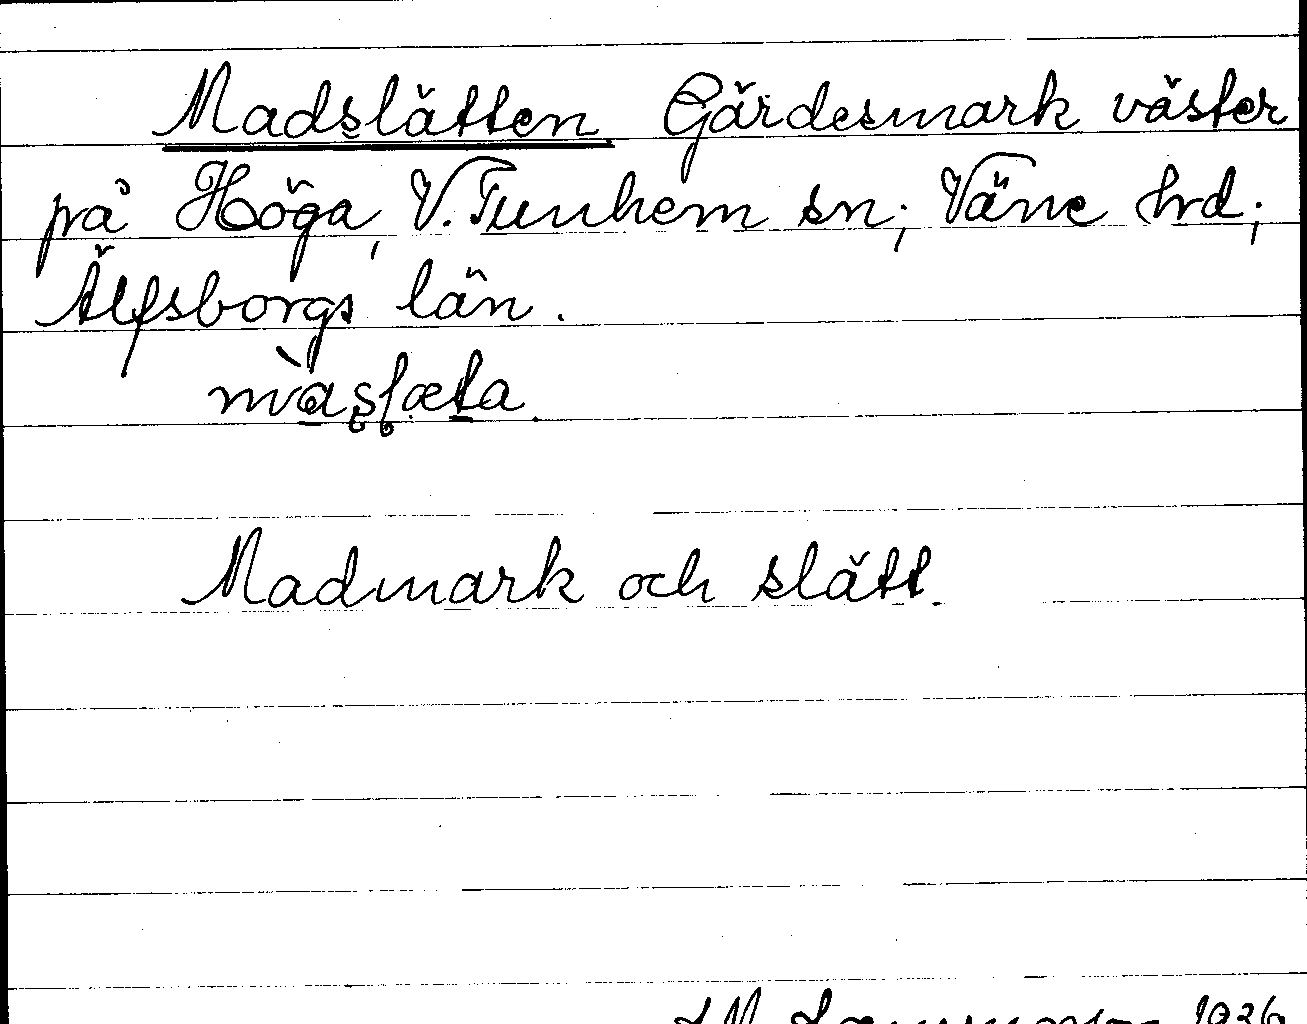 Madslätten Gärdesmark väster
på Höga, V. Tunhem sn; Väne hrd;
Älfsborgs län.
Madmark och slätt.
1936